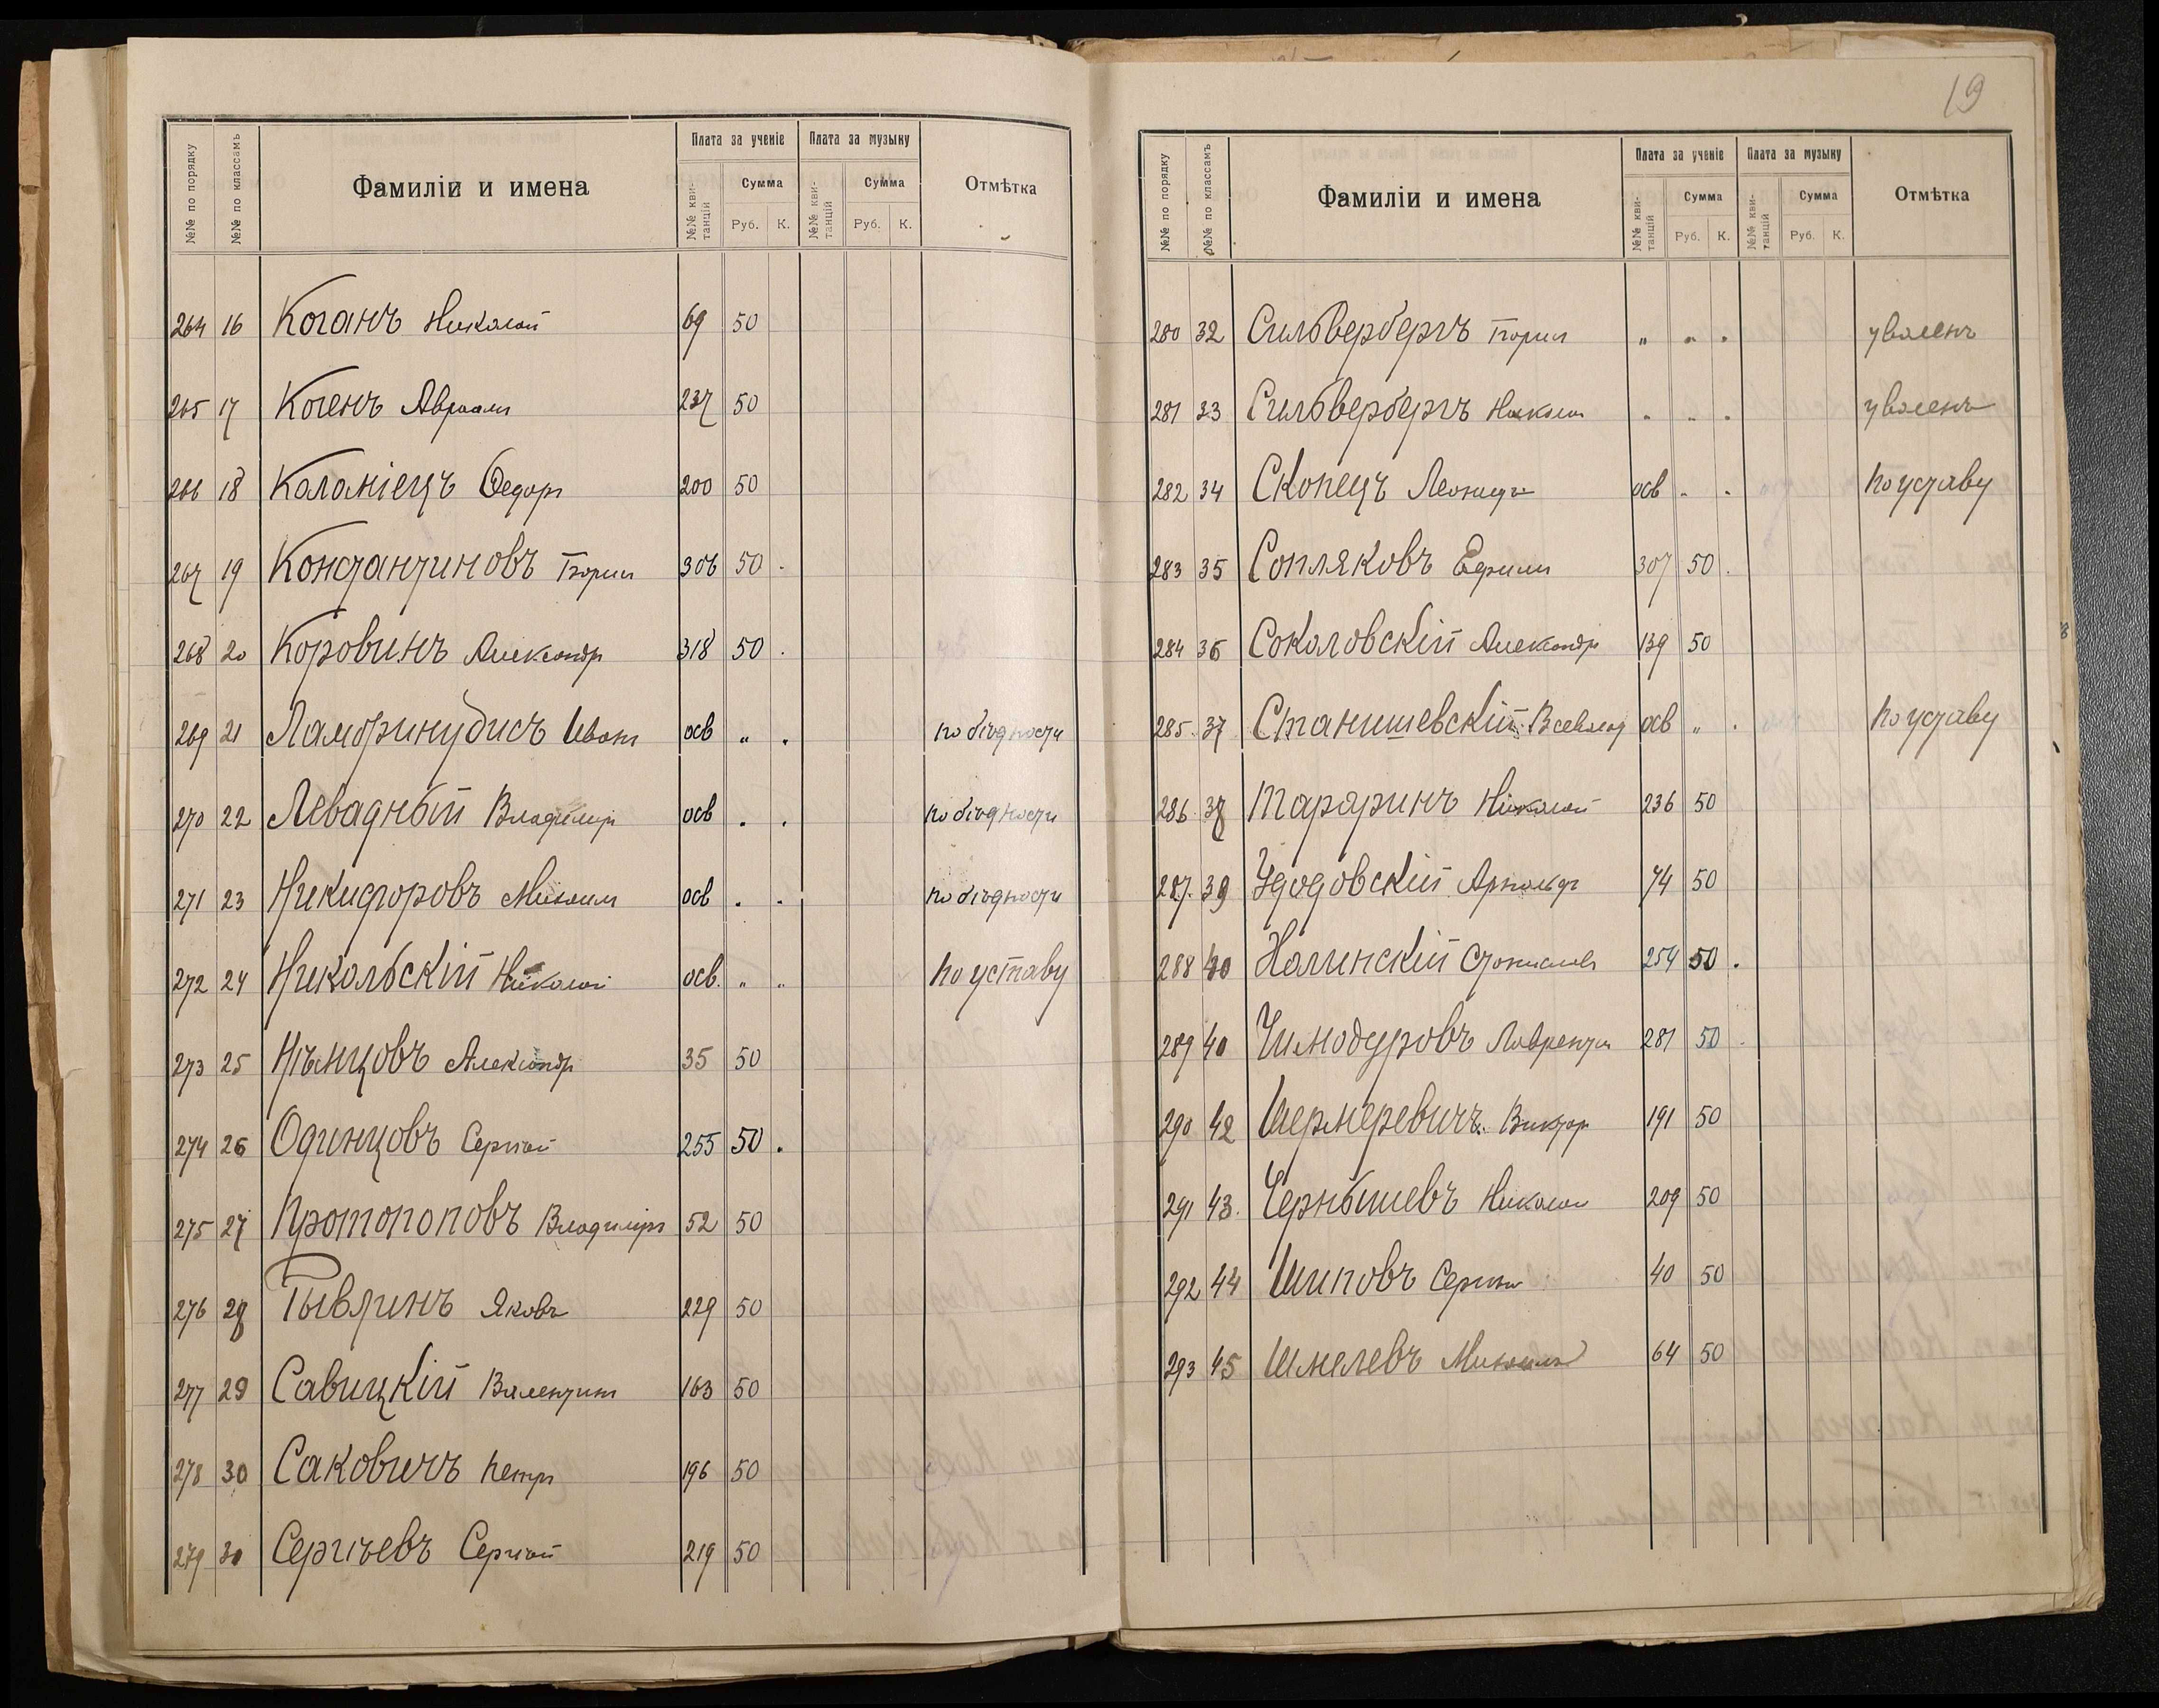 №№ по порядку №№ по классамъ Фамиліи и имена Плата за ученіе Плата за музыку Отмѣтка
№№ кви-танцій Сумма Руб. К. №№ кви-танцій Сумма Руб. К.
264 16 Коганъ Николай 69 50
265 17 Когенъ Авраам 237 50
266 18 Коломіецъ Ѳедоръ 200 50
267 19 Константиновъ Борис 306 50 .
268 20 Коровинъ Александр 318 50 .
269 21 Ламбринудисъ Иван осв „ . по бѣдности
270 22 Левадный Владимир осв . . по бѣдности
271 23 Никифоровъ Михаил осв . . по бѣдности
272 24 Никольскій Николай осв. „ „ по уставу
273 25 Нѣмцовъ Александр 35 50
274 26 Одинцовъ Сергѣй 255 50 .
275 27 Протопоповъ Владиміръ 52 50
276 28 Рывлинъ Яковъ 229 50
277 29 Савицкій Валентин 163 50
278 30 Саковичъ Петръ 196 50
279 30 Сергѣевъ Сергѣй 219 50
19
№№ по порядку №№ по классамъ Фамиліи и имена Плата за ученіе Плата за музыку Отмѣтка
№№ кви-танцій Сумма Руб. К. №№ кви-танцій Сумма Руб. К.
280 32 Сильвербергъ Борис „ „ . уволенъ
281 33 Сильвербергъ Николай „ „ . уволенъ
282 34 Скопецъ Леонидъ осв . . по уставу
283 35 Сопляковъ Ефим 307 50 .
284 36 Соколовскій Александр 139 50
285. 37 Станишевскій Всеволод осв „ . по уставу
286. 38 Тараринъ Николай 236 50
287. 39 Удодовскій Арнольд 74 50
288 40 Холинскій Станислав 254 50 .
289 40 Чимодуровъ Лаврентий 281 50 .
290 42 Шермеревичъ Виктор 191 50
291 43. Чернышевъ Николай 209 50
292 44 Шиповъ Сергѣй 40 50
293 45 Шмелевъ Михаил 64 50